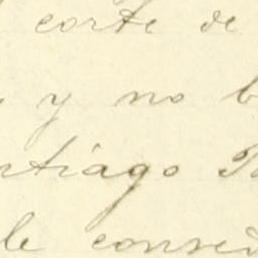 corte de
y no
ntiago
le conse